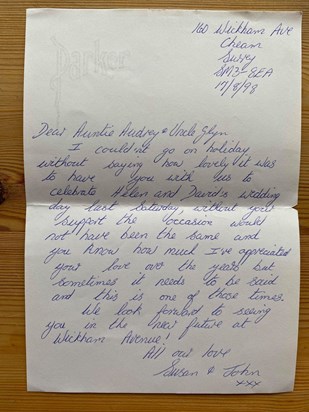 Parker
160 Wickham Ave
Cheam
Surry
SM3-8EA
17/8/98
Dear Auntie Audrey & Uncle Glyn
I couldn't go on holiday
without saying how lovely it was
to have you with us to
celebrate Helen and David's wedding
day last Saturday, without your
support the occasion would
not have been the same and
you know how much I've appreciated
your love over the years but
sometimes it needs to be said
and this is one of those times.
We look forward to seeing
you in the near future at
Wickham Avenue!
All our love
Susan & John
xxx